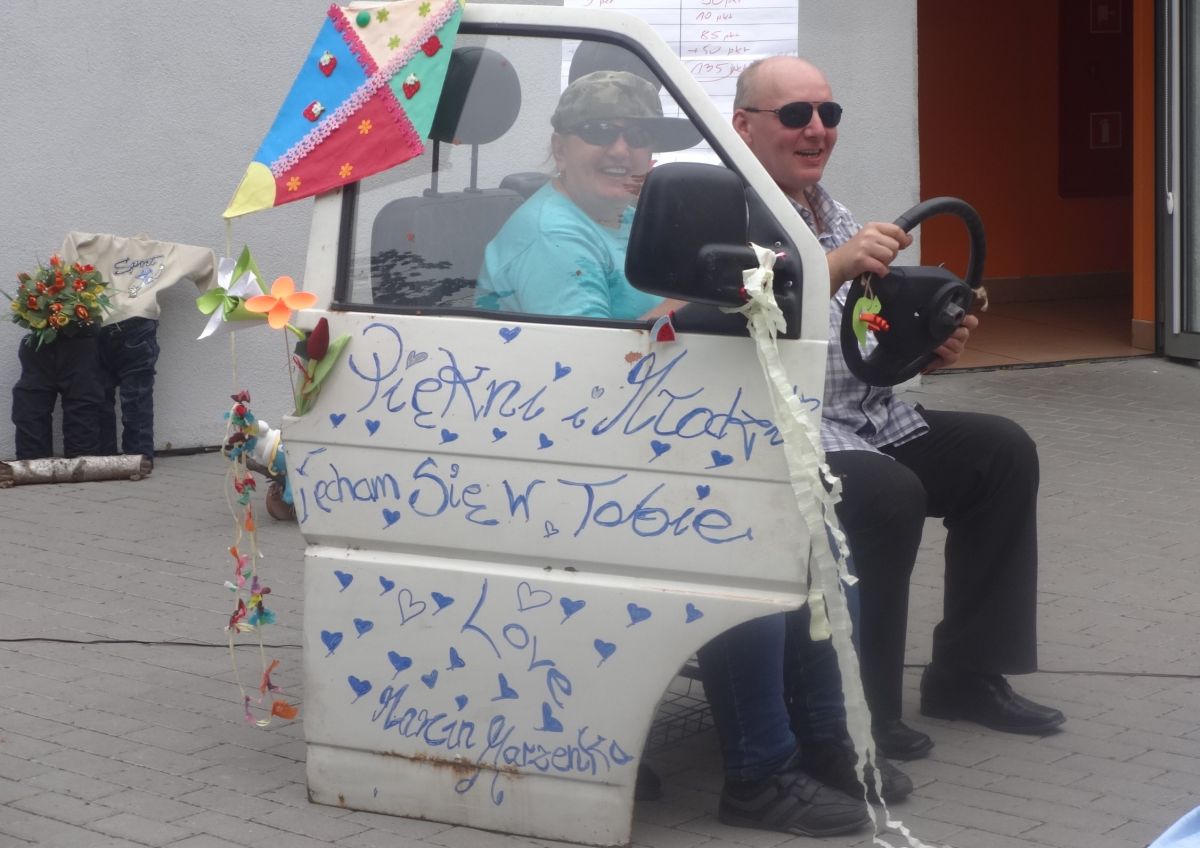 50 pkt
10 pkt
85 pkt
+50 pkt
135 pkt
Sport
Piękni i Młodzi
Jecham Się w Tobie
Love
Marcin Marzenka